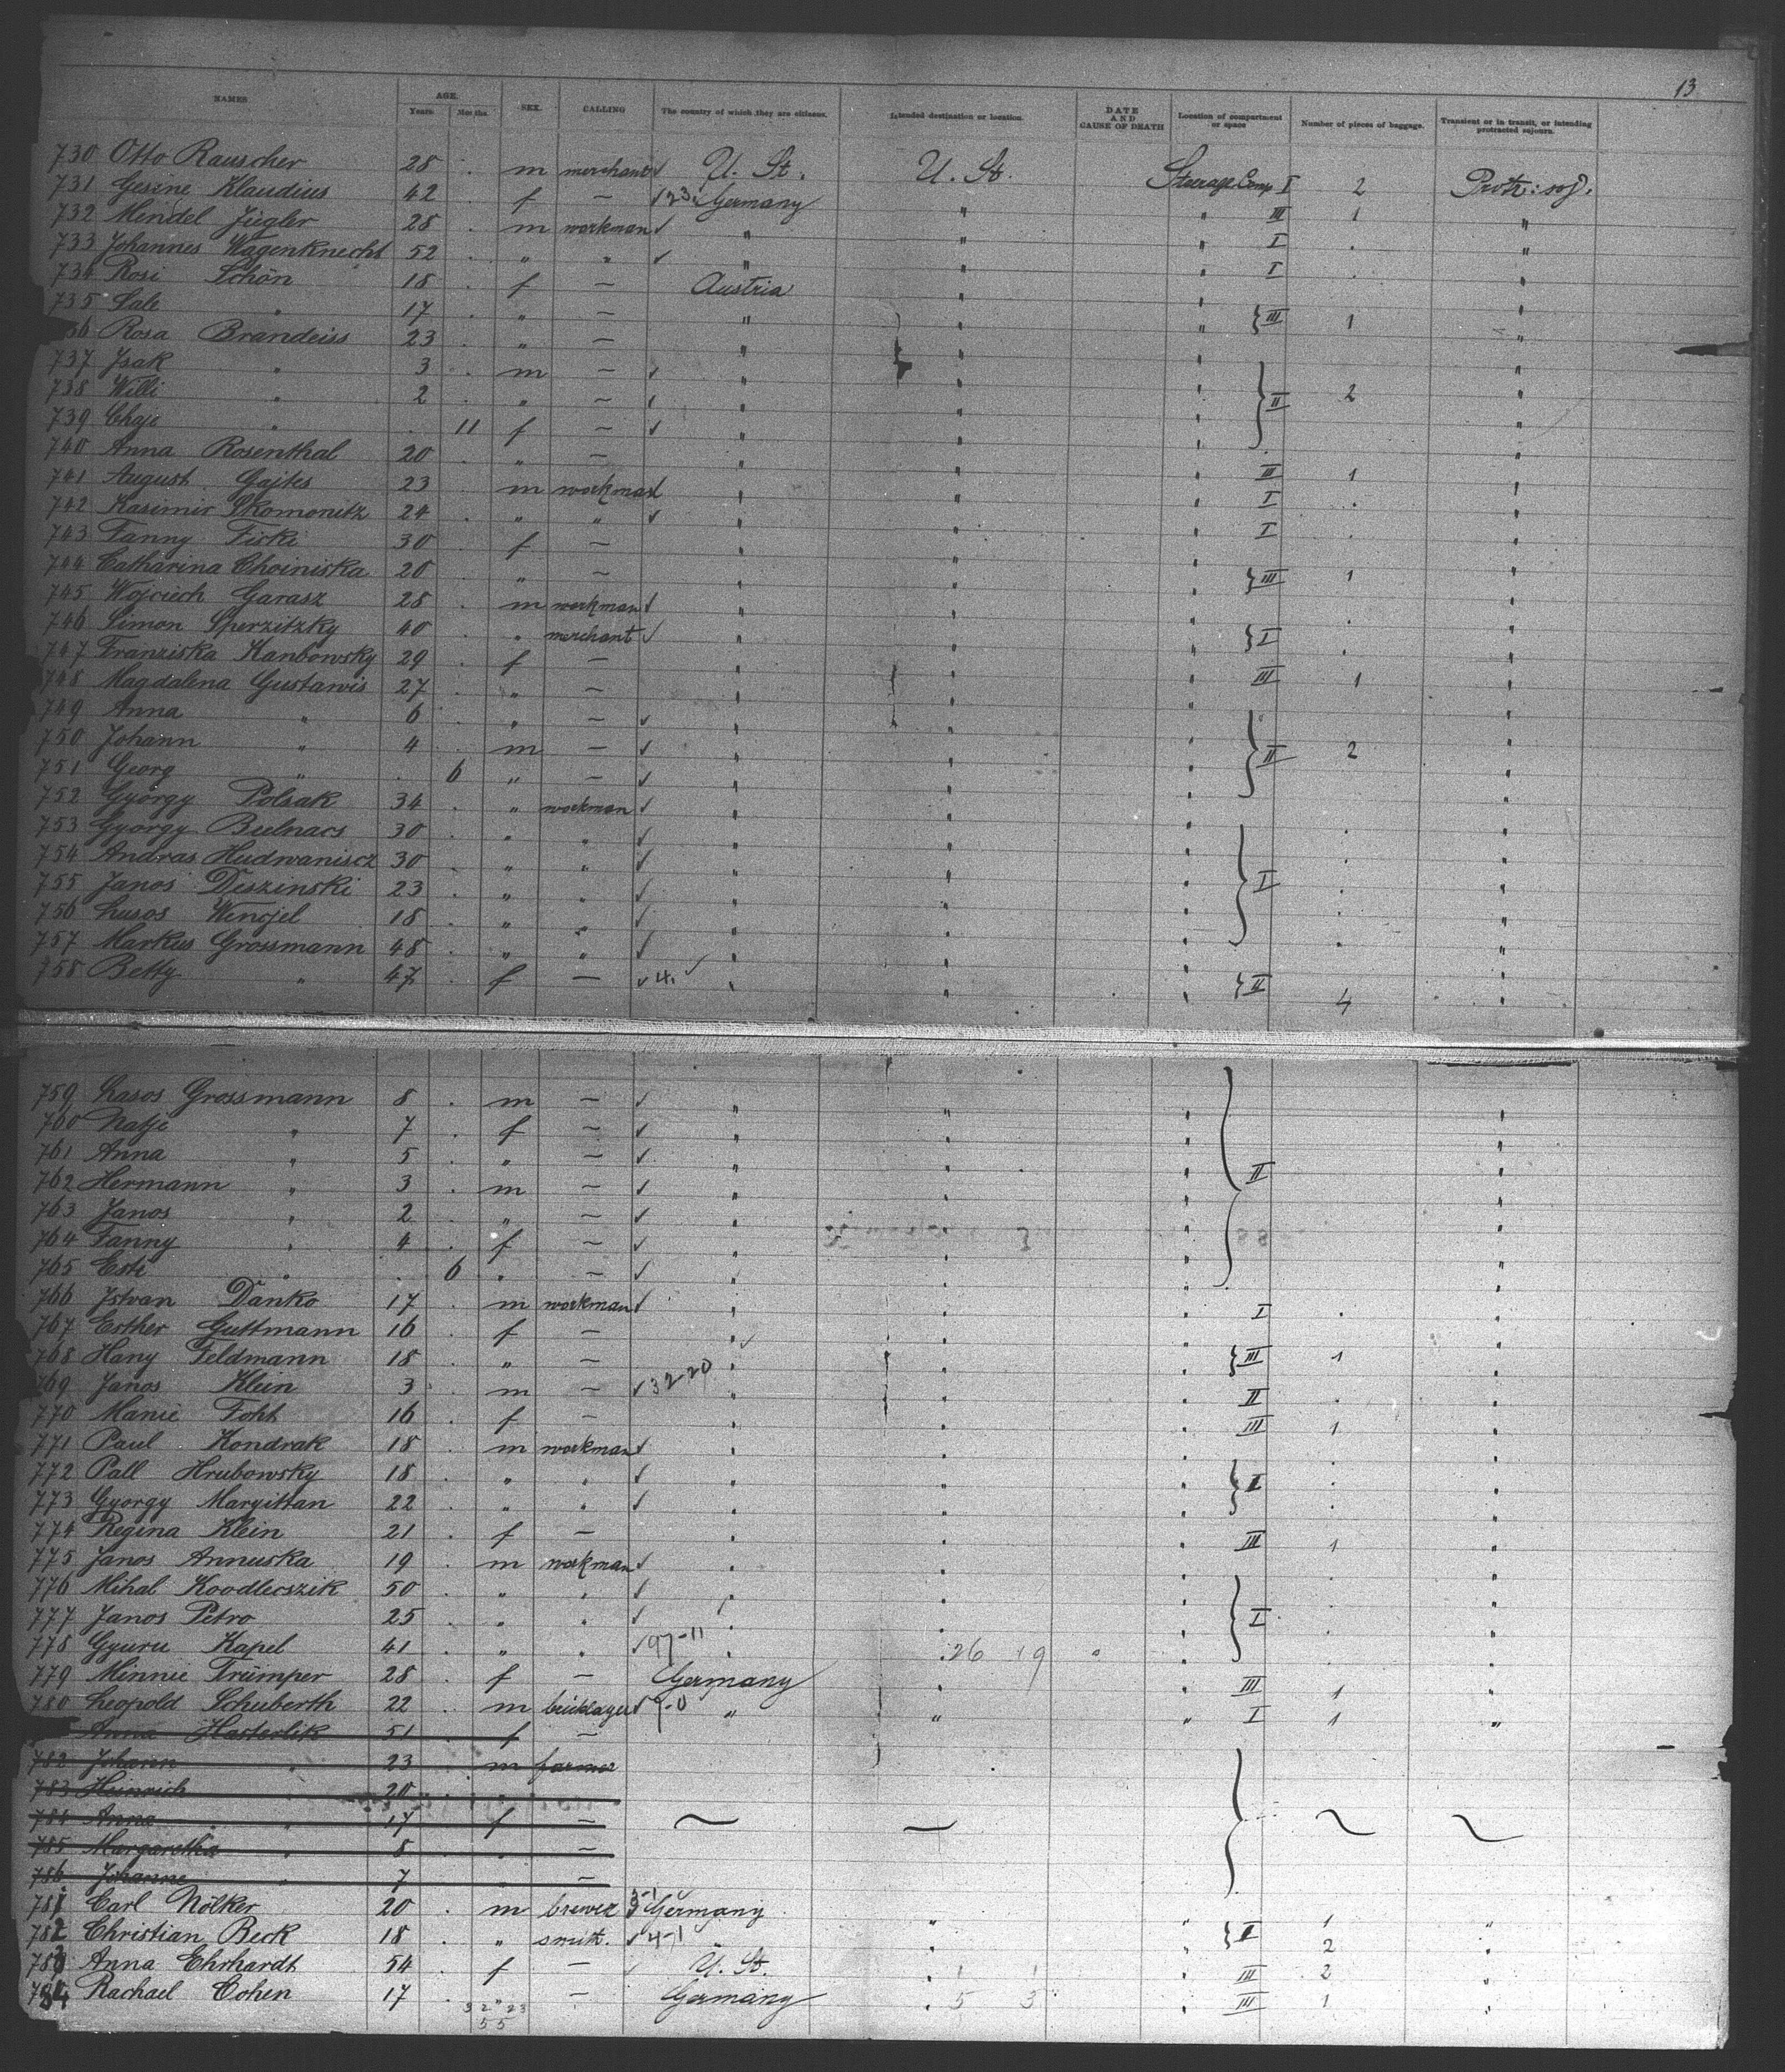 13
NAMES AGE. Years Mos ths. SEX. CALLING The country of which they are citizens. Intended destination or location. DATE AND CAUSE OF DEATH Location of compartment or space Number of pieces of baggage. Transient or in transit, or intending protracted sojourn.
730 Otto Rauscher 28 . m merchant ✓ U. St. U. St. Steerage Comp. I 2 Protr: soj.
731 Gesine Klaudius 42 . f — ✓ 23 Germany " " III 1 "
732 Mendel Ziegler 28 . m workman ✓ " " " I . "
733 Johannes Wagenknecht 52 . " " ✓ " " " I . "
734 Rosi Schön 18 . f — Austria " " "
735 Sale " 17 . " — " " " } III 1 "
736 Rosa Brandeiss 23 . " — " " " "
737 Isak " 3 . m — ✓ " " " "
738 Willi " 2 . " — ✓ " " " } II 2 "
739 Chaje " . 11 f — ✓ " " " "
740 Anna Rosenthal 20 . " — " " " III 1 "
741 August Gajtes 23 . m workman ✓ " " " I . "
742 Kasimir Skomonitz 24 . " " ✓ " " " I . "
743 Fanny Fiske 30 . f — " " " "
744 Catharina Choiniska 20 . " — " " " } III 1 "
745 Wojciech Garasz 28 . m workman ✓ " " " . "
746 Simon Sperzitzky 40 . " merchant ✓ " " " } I . "
747 Franziska Kanbowsky 29 . f — " " " III 1 "
748 Magdalena Gustawis 27 . " — " " " "
749 Anna " 6 . " — ✓ " " " "
750 Johann " 4 . m — ✓ " " " } II 2 "
751 Georg " . 6 " — ✓ " " " "
752 György Polsak 34 . " workman ✓ " " " "
753 Gyorgy Bulnacs 30 . " " ✓ " " " . "
754 Andras Hudwaniscz 30 . " " ✓ " " " . "
755 Janos Deszinski 23 . " " ✓ " " " } I . "
756 Lusos Wencjel 18 . " " ✓ " " " . "
757 Markus Grossmann 48 . " " ✓ " " " . "
758 Betty " 47 . f — ✓ 4. ✓ " " " } II 4 "
759 Lasos Grossmann 8 . m — ✓ " " " "
760 Natje " 7 . f — ✓ " " " "
761 Anna " 5 . " — ✓ " " " "
762 Hermann " 3 . m — ✓ " " " } II "
763 Janos " 2 . " — ✓ " " " "
764 Fanny " 4 . f — ✓ " " " "
765 Esti " . 6 " — ✓ " " " "
766 Istvan Danko 17 . m workman ✓ " " " I . "
767 Esther Guttmann 16 . f — " ✓ " " "
768 Hany Feldmann 18 . " — " " " } III 1 "
769 Janos Klein 3 . m — ✓ 32-20 " " " II . "
770 Manie Foht 16 . f — " " " III 1 "
771 Paul Kondrak 18 . m workman ✓ " " " . "
772 Pall Hrubowsky 18 . " " ✓ " " " } I . "
773 Gyorgy Margittan 22 . " " ✓ " " " . "
774 Regina Klein 21 . f — " " " III 1 "
775 Janos Annuska 19 . m workman ✓ " " " . "
776 Mihal Koodlecszik 50 . " " ✓ " " " . "
777 Janos Petro 25 . " " ✓ " " " } I . "
778 Gyuru Kapel 41 . " " ✓ 97-11 " " 26 19 " . "
779 Minnie Trümper 28 . f — Germany " " III 1 "
780 Leopold Schuberth 22 . m bricklayer ✓ 9-0 " " " I 1 "
Anna Hasterlik 51 . f —
782 Johann " 23 . m farmer
783 Heinrich " 20 . " "
784 Anna " 17 . f — — — } ~ ~
785 Margaretha " 8 . " —
786 Johanne " 7 . " —
781 Carl Nölker 20 . m brewer ✓ 3-1 Germany " " 1 "
782 Christian Beck 18 . " smith. ✓ 4-1 " " } I 2 "
783 Anna Ehrhardt 54 . f — U. St. " 1 1 " III 2 "
784 Rachael Cohen 17 . " — Germany " 5 3 " III 1 "
32 23
55